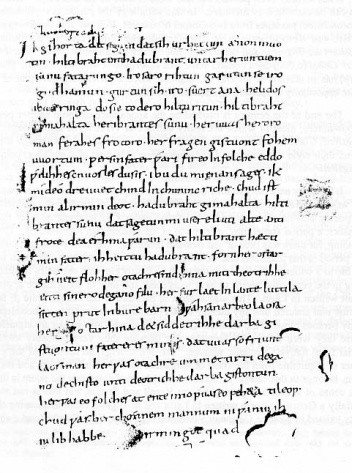 Ik gihorta dat seggen dat sih urhettun ænon muo
tin. hiltibraht enti hadubrant. untar heriun tuem.
sunu fatarungo. iro saro rihtun garutun se iro
gudhamun. gurtun sih. iro. suert ana. helidos
ubar ringa do sie to dero hiltu ritun. hiltibraht
gimahalta heribrantes sunu. her uuas heroro
man ferahes frotoro. her fragen gistuont fohem
uuortum. ƿer sin fater ƿari fireo In folche eddo
ƿelihhes cnuosles du sis. ibu du mi ęnan sages. ik
mideo dre uuet chind In chunincriche. chud ist
min al irmindeot. hadubraht gimahalta hilti
brantes sunu dat sagetun mi usere liuti alte anti
frote dea erhina ƿarun. dat hiltibrant hætti
min fater. ih heittu hadubrant. forn her ostar
gihueit floh her otachres nid hina miti theotrihhe
enti sinero degano filu. her furlaet In lante luttila
sitten prut In bure barn unƿahsan arbeo laosa
her ostar hina det sid detrihhe darba gi
stuontum fatereres mines. dat uuas so friunt
laos man her ƿas otachre ummettirri dega
no dechisto unti deotrichhe darba gistontun
her ƿas eo folches at ente imo ƿuas eo feheta ti leop.
chud ƿas her chonnem mannum ni ƿaniu ih
iu lib habbe. irmingot quad